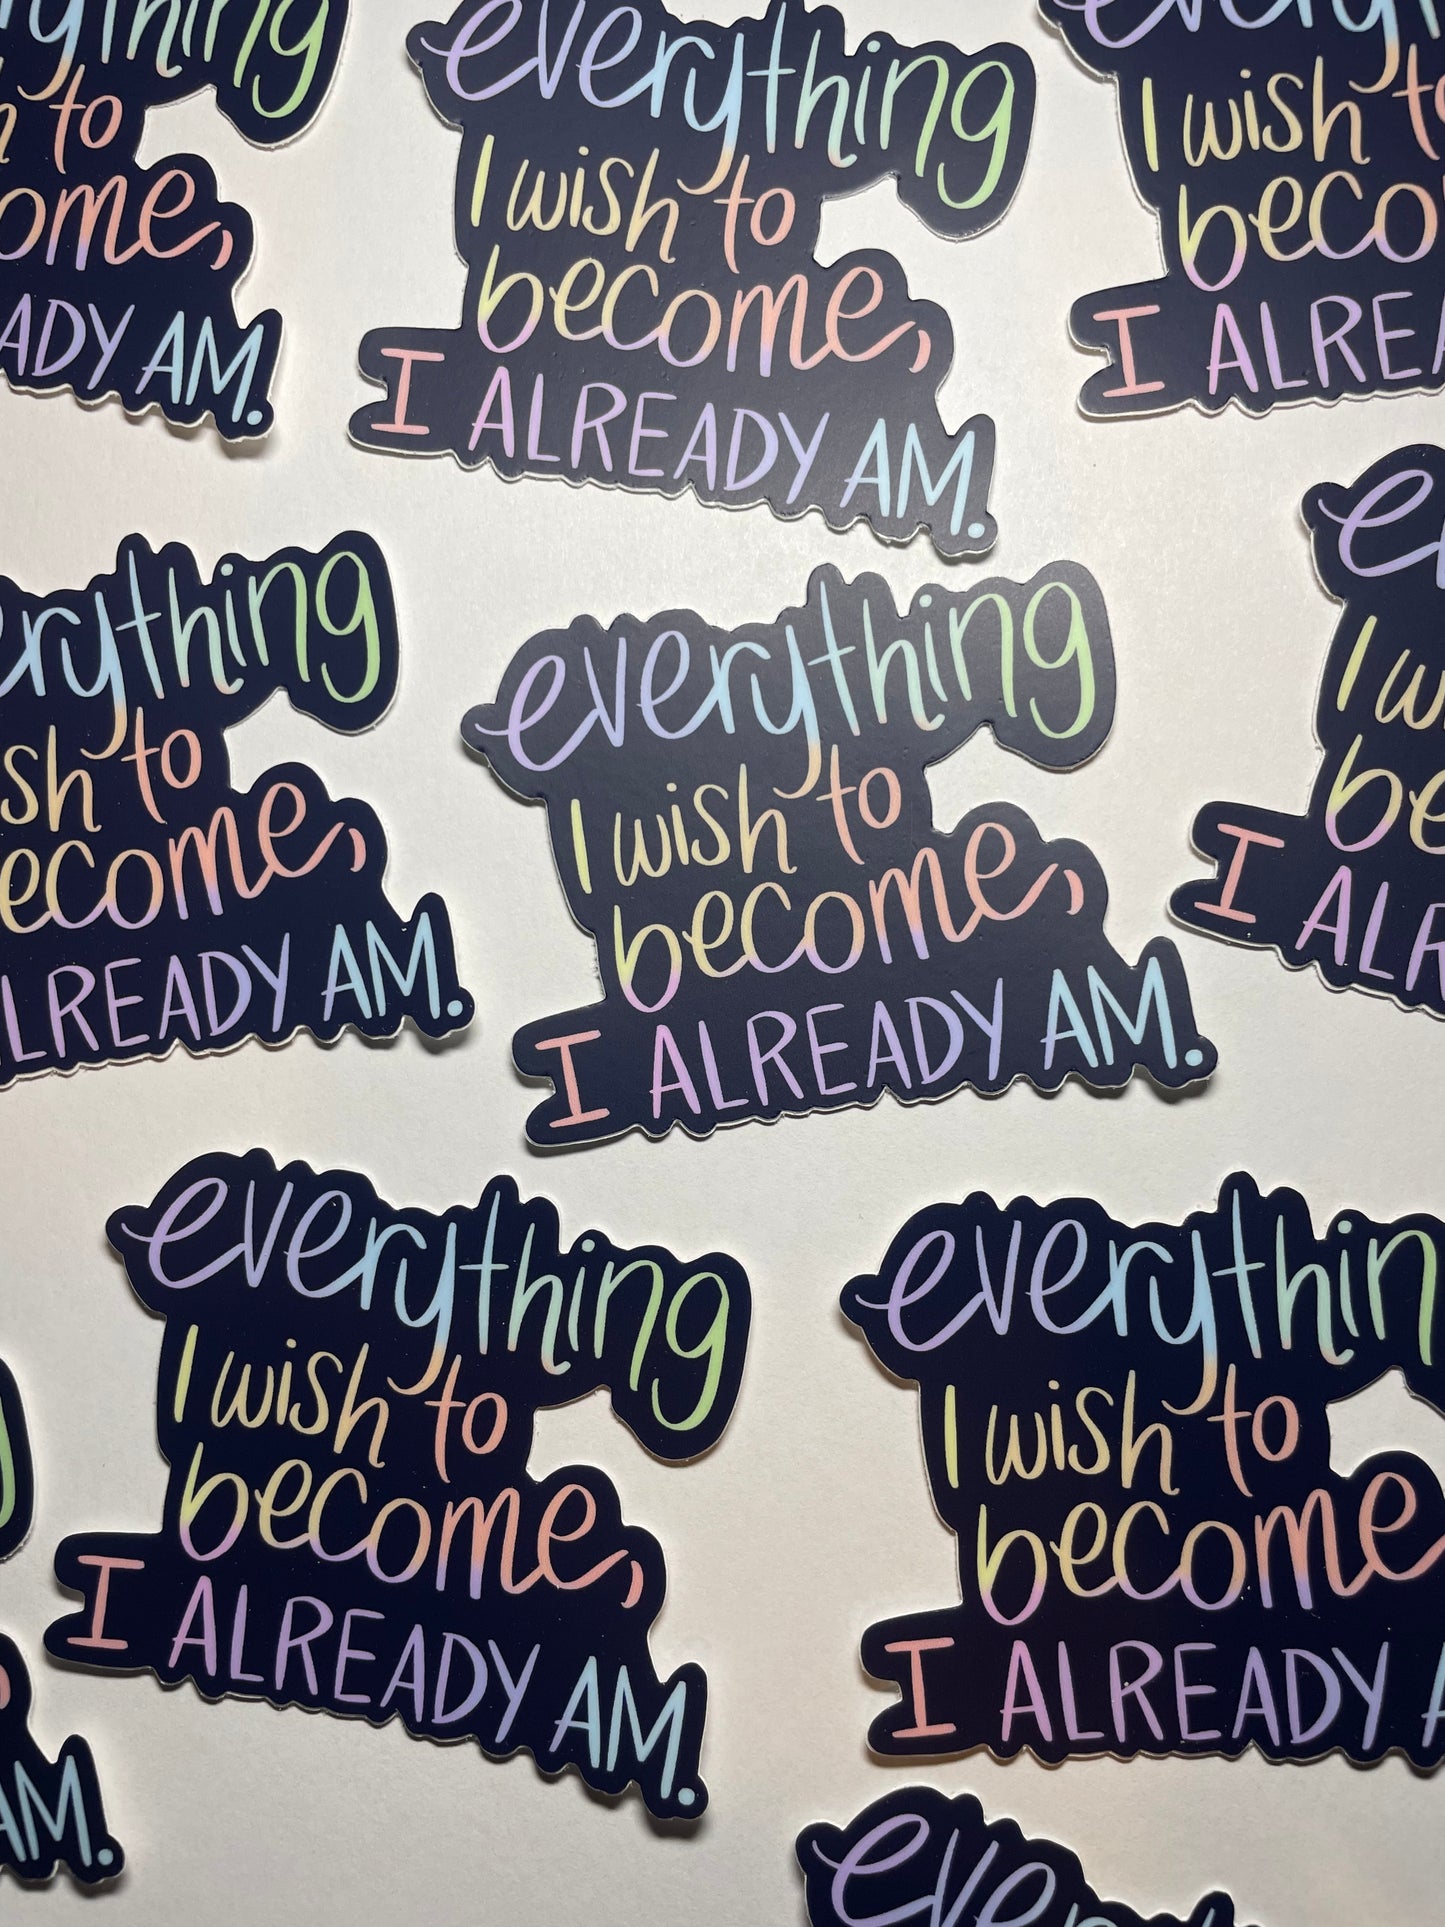 erything
to
ome,
ADY AM.
everything
I wish to
become,
I ALREADY AM.
I wish
beco
I ALRE
erything
sh to
ecome,
ALREADY AM.
everything
I wish to
become,
I ALREADY AM.
e
I w
be
I ALR
everything
I wish to
become,
I ALREADY AM.
everythin
I wish to
become
I ALREADY
AM.
every